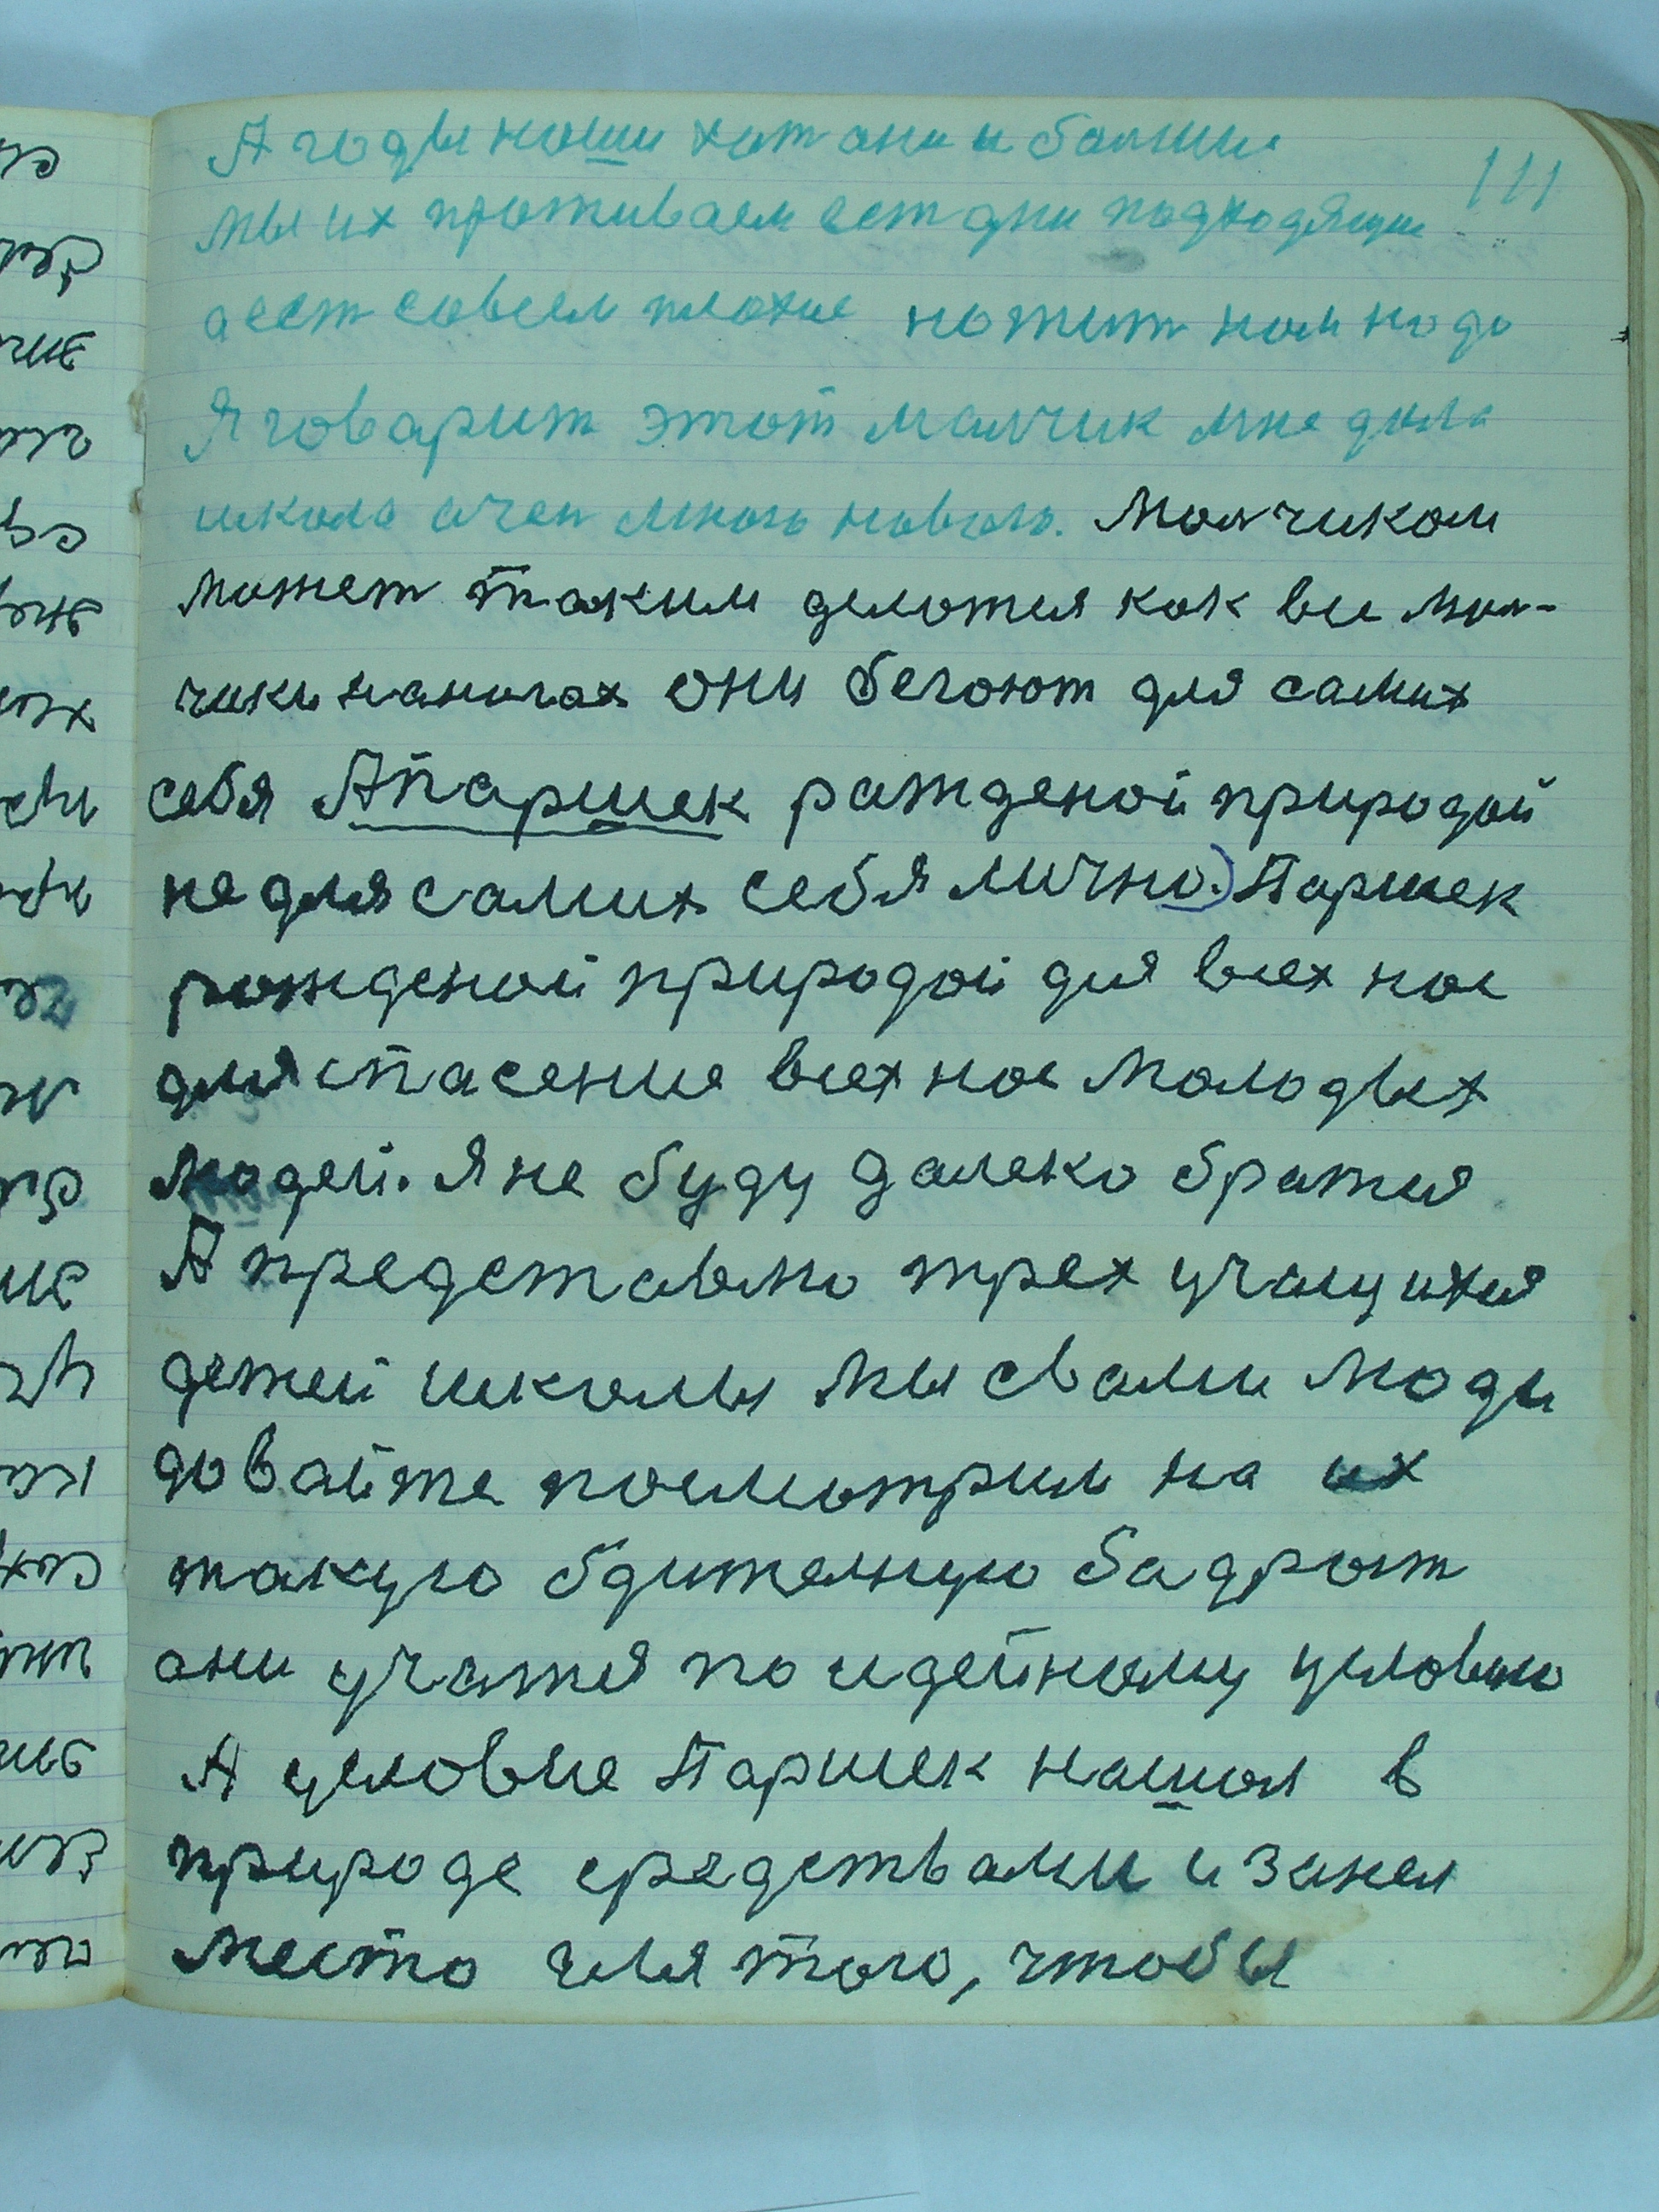 111
А годы наши хот они и балшие
мы их проживаем ест дни подходящие
а ест совсем плохие но жит нам надо
Я говарит этот малчик мне дала
школа очен много нового. Малчиком
может таким делотся как все мал-
чики на ногах они бегоют для самих
себя А Паршек рожденой природой
не для самих себя лично.) Паршек
рожденой природой для всех нас
для спасение всех нас молодых
людей. Я не буду далеко братся
А представлю трех учащихся
детей школы мы с вами люди
довайте посмотрим на их
такую бдителную бадрост
они учатся по идейному условию
А условие Паршек нашол в
природе средствами и занел
место для того, чтобы